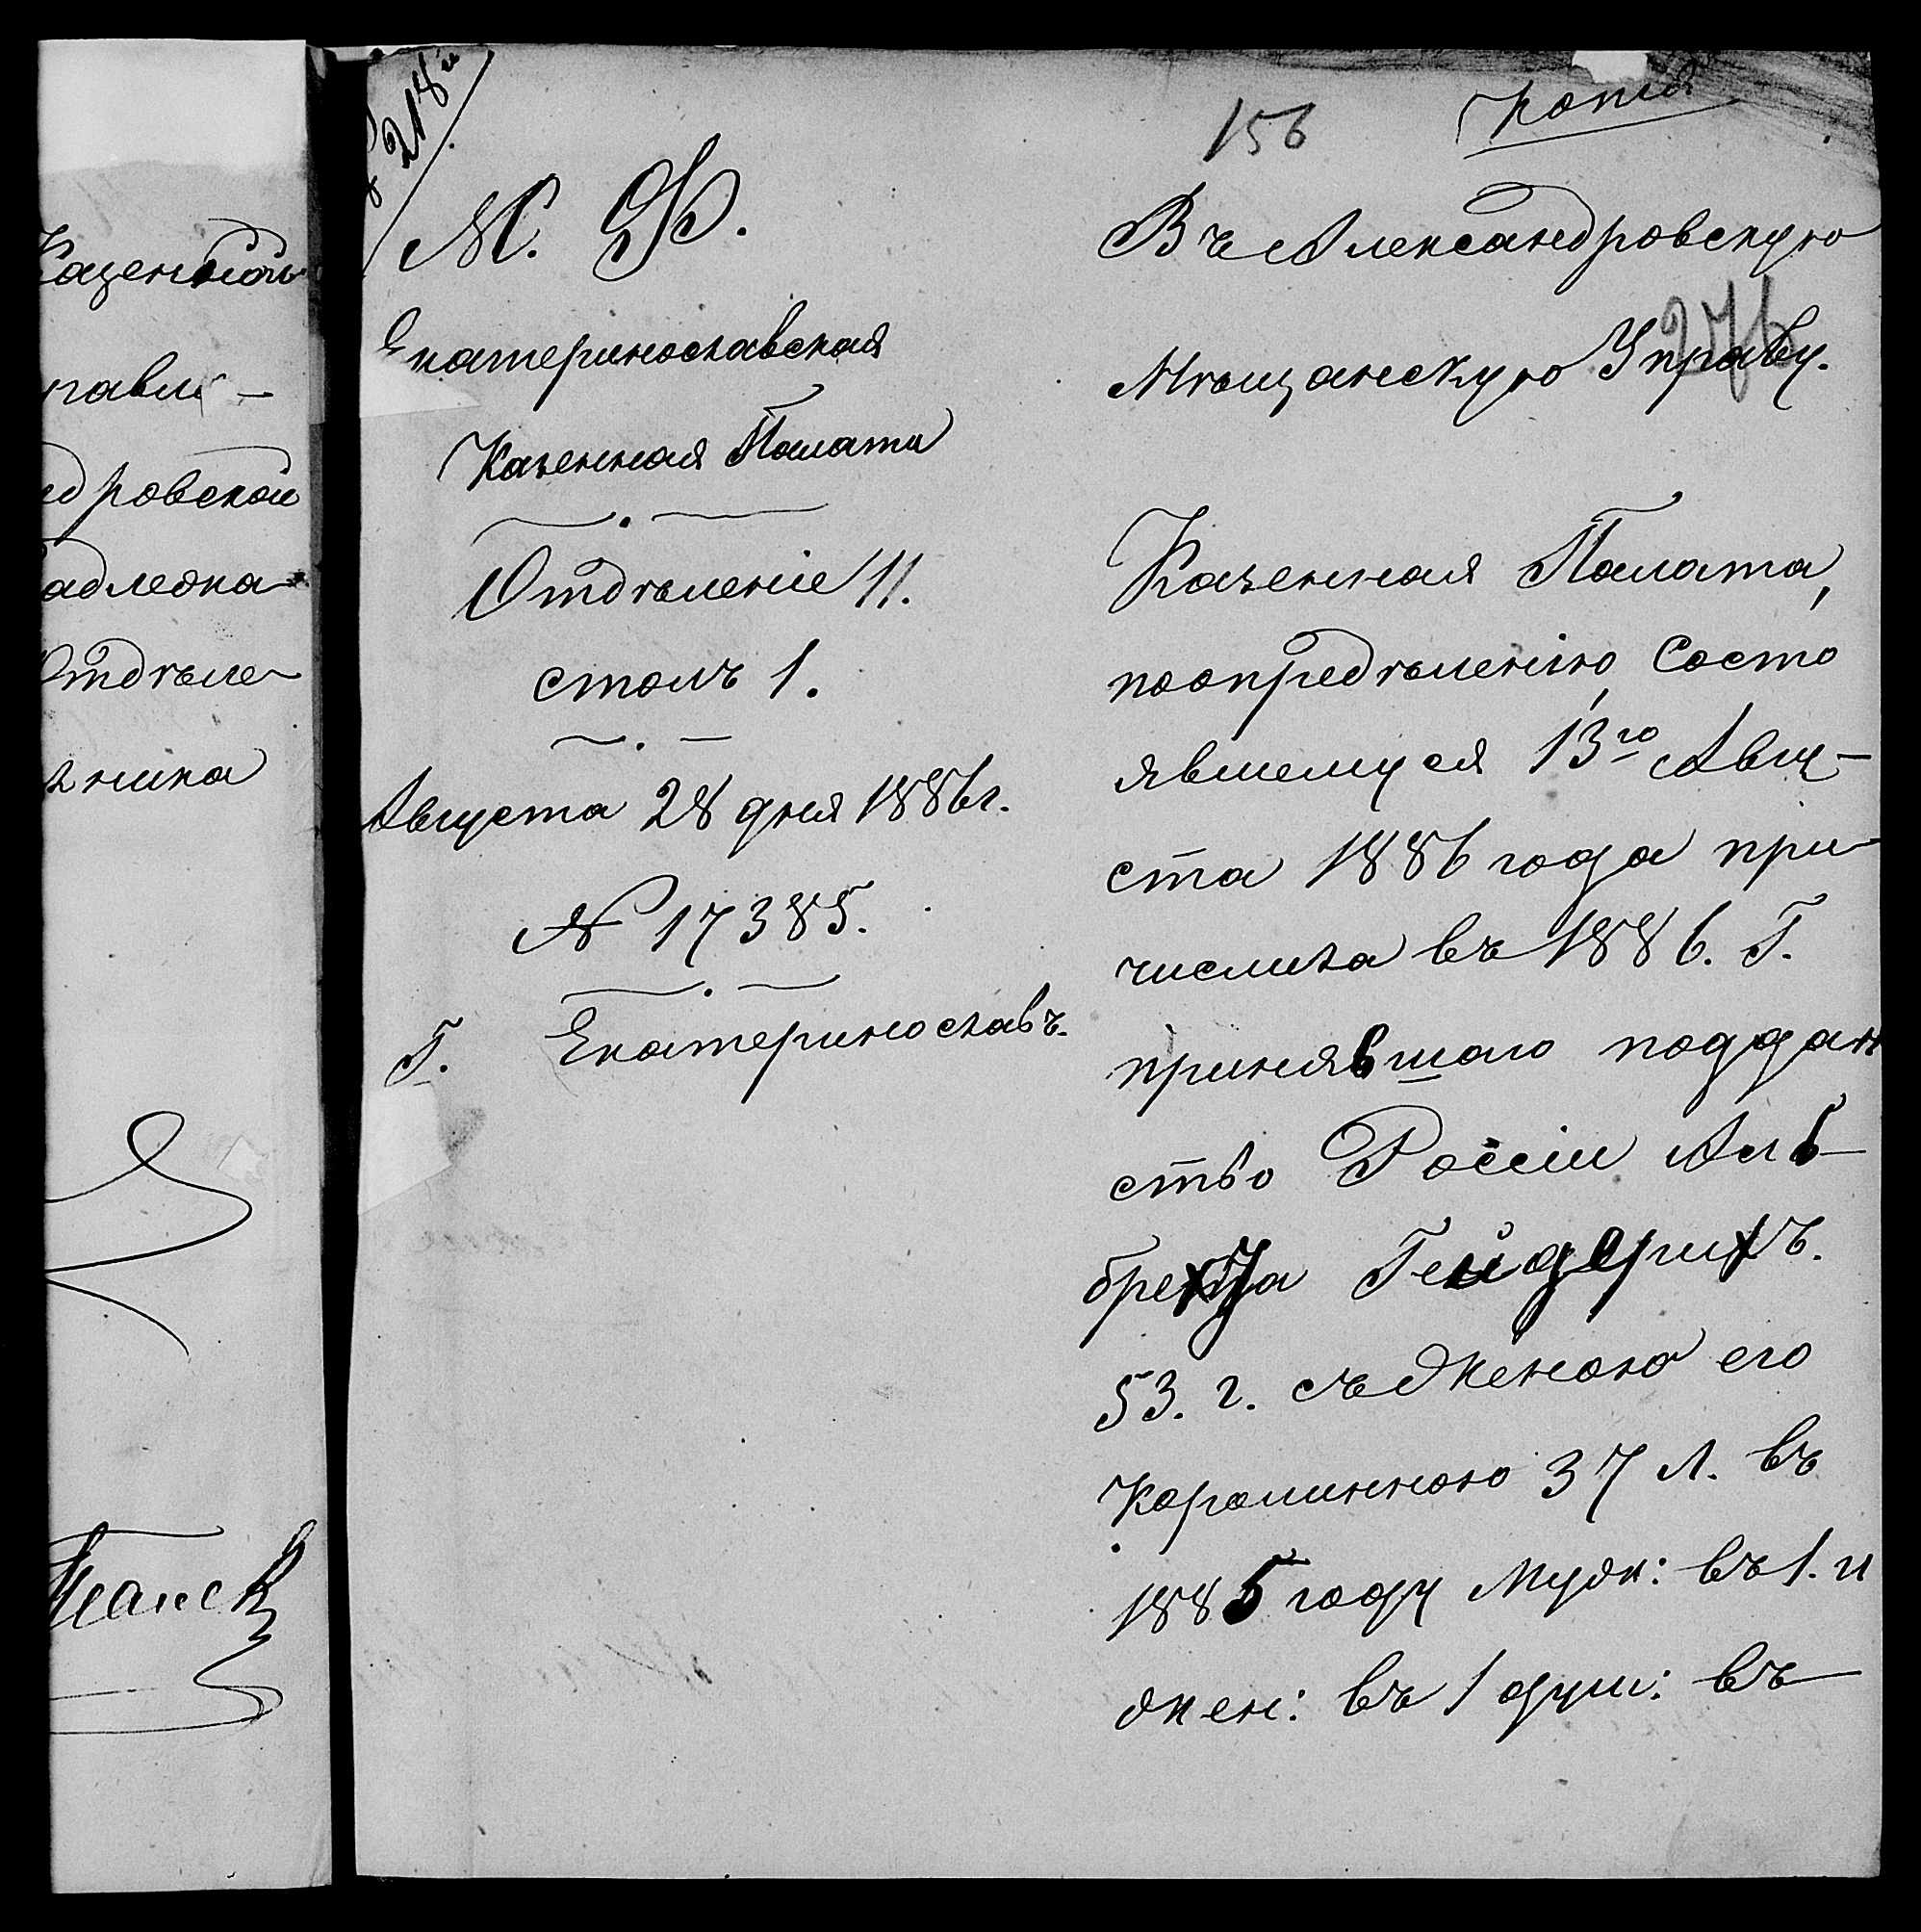 Казенной
равле-
ндровской
адлежа-
Отдѣле-
ника
218
156
Копія
М. Ф.
Екатеринославская
Казенная Палата
Отдѣленіе II.
столъ 1.
Августа 28 дня 1886 г.
№ 17385.
Г. Екатеринославъ.
Въ Александровскую
276
Мѣщанскую Управу.
Казенная Палата,
поопредѣленію, Состо
явшемуся 13го Авгу-
ста 1886 года при-
числила въ 1886. Г.
принявшаго поддан
ство Россіи Аль-
брехта Гейдерихъ.
53. г. съ женою его
Каролинною 37 л. въ
1885 году муж: въ 1. и
жен: въ 1 душ: въ